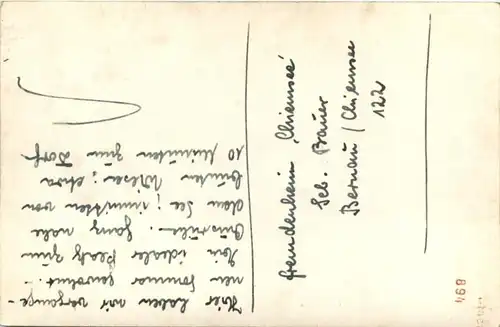 Hier haben wir vergange-
nen Sommer gewohnt.-
Ein idealer Platz zum
Ganz nahe
dem See; inmitten von
bunten Wiesen; etwa
10 Minuten zum Dorf
Fremdenheim "Chiemsee"
Seb. Bauer
Bernau / Chiemsee
122
894